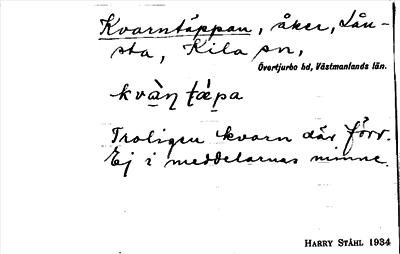 Kvarntäppan, åker, Lån-
sta, Kila sn,
Övertjurbo hd, Västmanlands län.
kvàη táp̣a
Troligen kvarn där förr.
Ej i meddelarnas minne.
HARRY STÅHL 1934